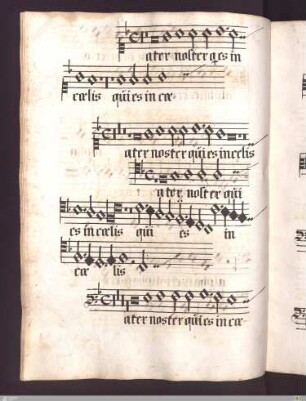 ater noster q̃ es in
cœlis qũi es in cœ-
ater noster qũi es in cœlis
ater noster qũi
es in cœlis qũi es in
cœ lis
ater noster qũi es in cœ-